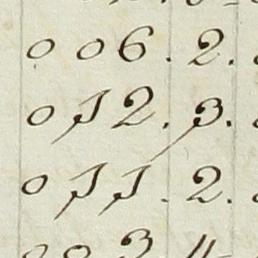 006. 2.
012. 3.
011. 2.